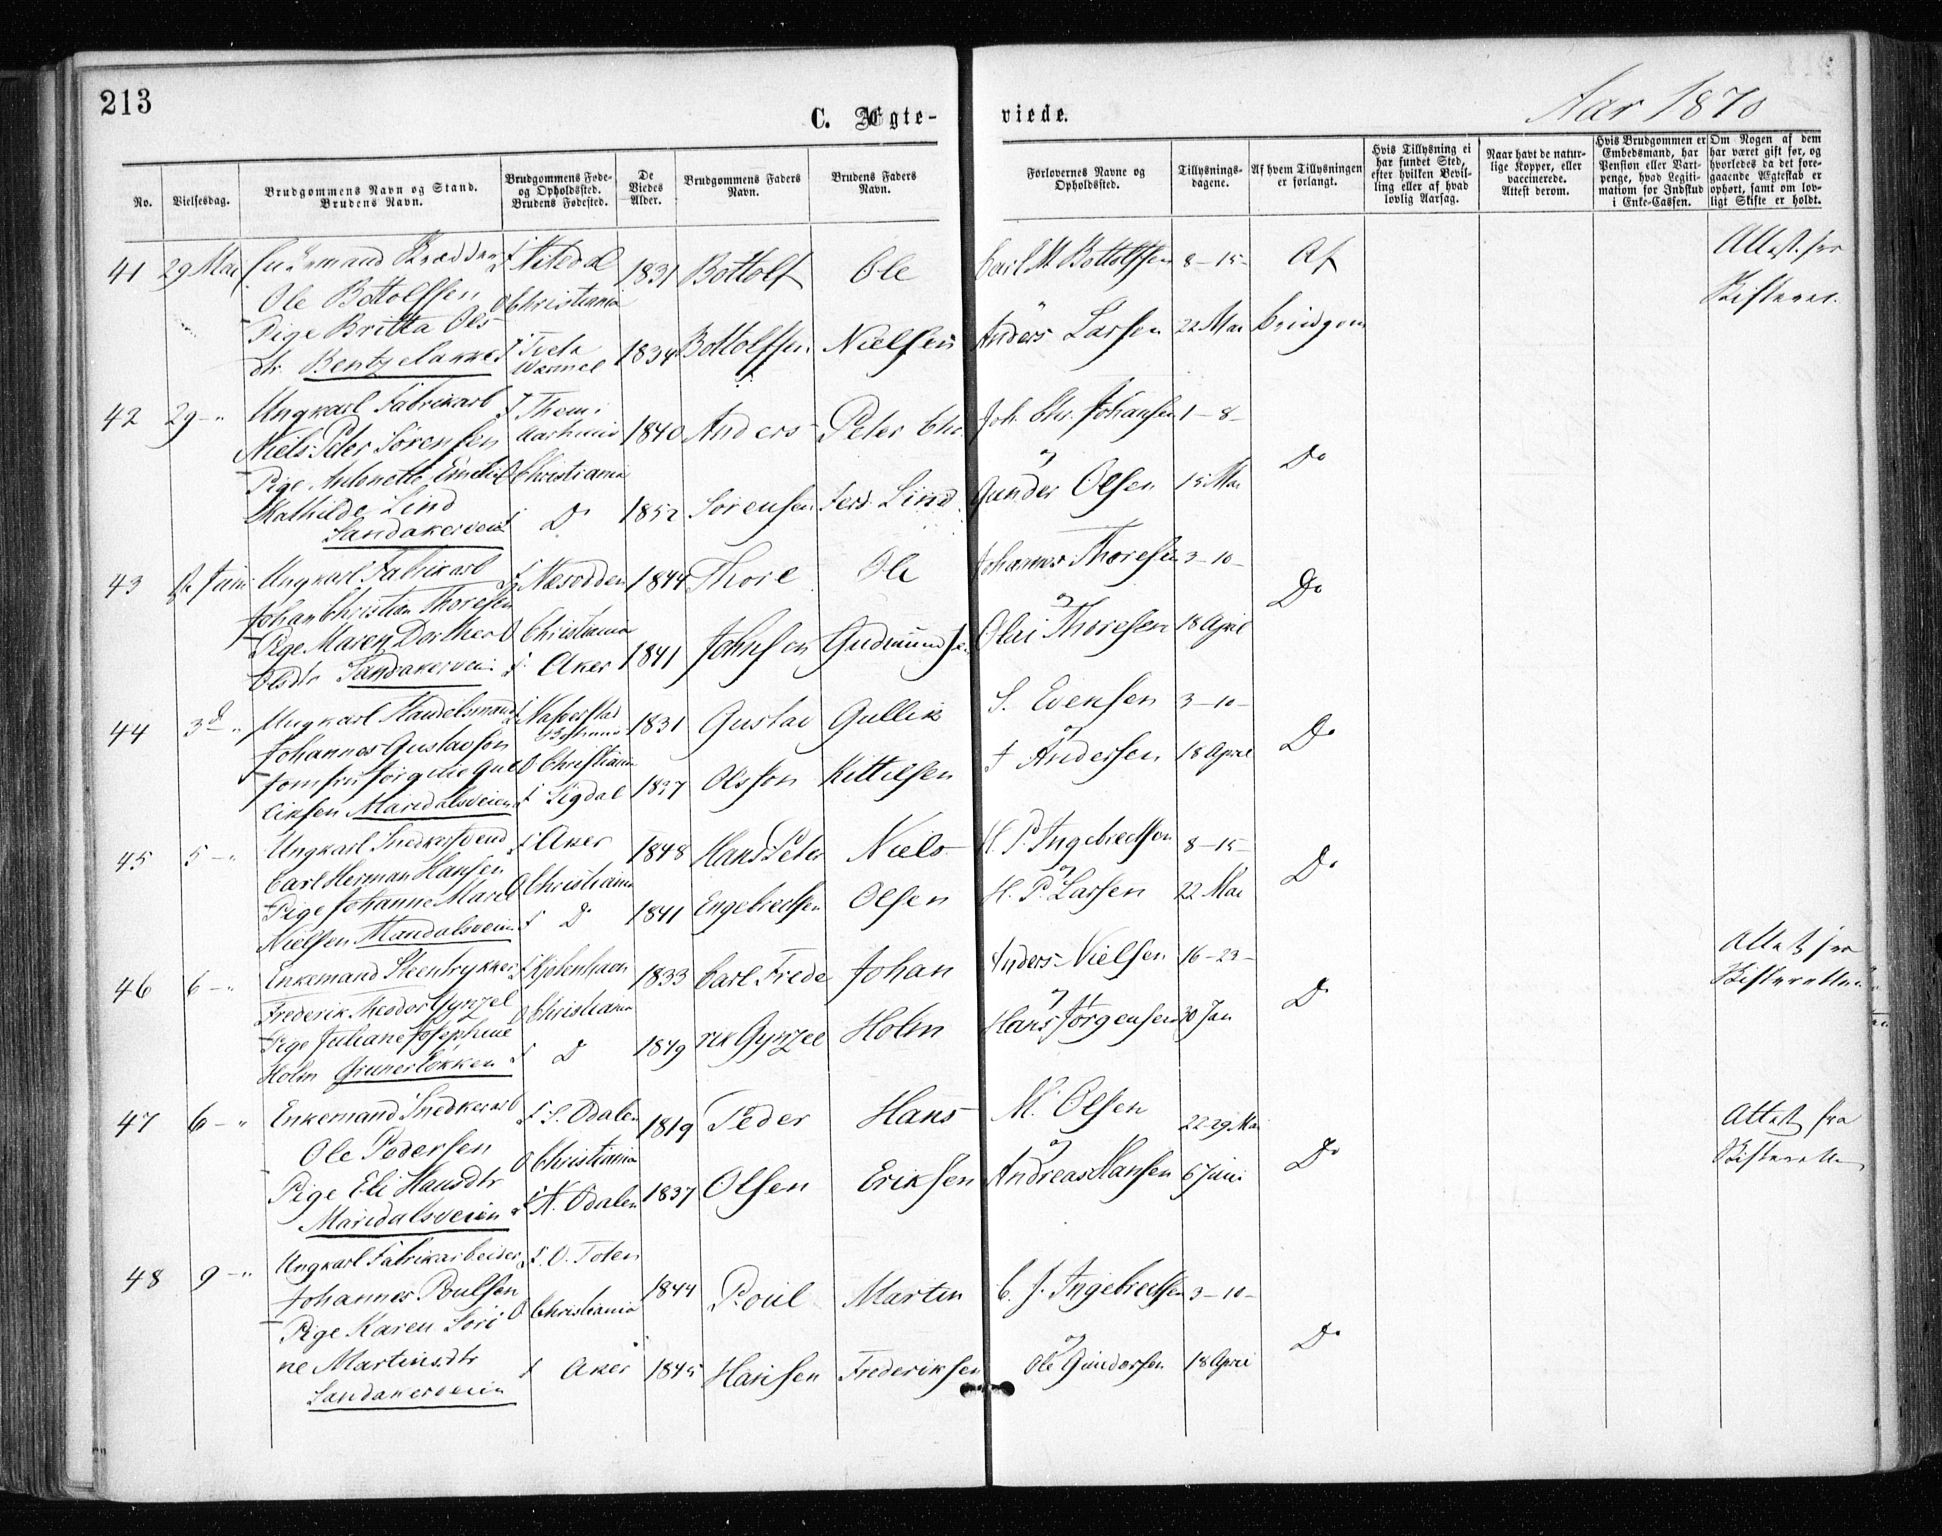 213
C. Ægte-
viede.
Aar 1870
No.
Vielsesdag.
Brudgommens Navn og Stand.
Brudens Navn.
Brudgommens Føde-
og Opholdssted.
Brudens Fødested.
De
Viedes
Alder.
Brudgommens Faders
Navn.
Brudens Faders
Navn.
Forlovernes Navne og
Opholdssted.
Tillysnings-
dagene.
Af hvem Tillysningen
er forlangt.
Hvis Tillysning ei
har fundet Sted,
efter hvilken Bevil-
ling eller af hvad
lovlig Aarsag.
Naar havt de natur-
lige Kopper, eller
vaccinerede.
Attest derom.
Hvis Brudgommen er
Embedsmand, har
Pension eller Vart-
penge, hvad Legiti-
mation for Indskud
i Enke-Cassen.
Om Nogen af dem
har været gift før, og
hvorledes da det fore-
gaaende Ægteskab er
ophørt, samt om lov-
ligt Skifte er holdt.
41 29 Mai
Ole Bottolfsen
Pige Britta Ols
dtr
F Nitedal
O Christiania
F Tveta
1831
1834
Bottolf
Bottolfsen
Ole
Nielsen
Carl M Bottolfsen
Anders Larsen
8-15-
22 Mai
Af
brudgom
Attest fra
42 29-"
Ungkarl Fabrikarb
Niels Peter Sørensen
Pige Antonette Emelie
Mathilde Lind
Sandakerveien
Aarhuus
O Christiania
F Do
1840
1852
Anders
Sørensen
Peter Chr.
Ferd. Lind
Joh. Chr. Johansen
og
Gunder Olsen
1-8-
15 Mai
Do
43 Juni
Ungkarl Fabrikarb
Johan Christian Thoresen
Pige Maren Dorthea
Olsdtr Sandakervei
F Næsodden
O Christiania
F Aker
1844
1841
Thore
Johnsen
Ole
Gudmundsen
Johannes Thoresen
og
Olai Thoresen
3-10-
18 April
Do
44 3d-"
Ungkarl Handelsmand
Johannes Gustavson
Jomfru Jørgine Gul
liksen Maridalsveien
O Christiania
F Sigdal
1831
1827
Gustav
Olsson
Gullik
Kittilsen
S. Evensen
og
J Andersen
3-10-
18 April
Do
45 5-"
Ungkarl Snedkersvend
Carl Herman Hansen
Pige Johanne Marie
Nielsen Maridalsveien
F Aker
O Christiania
F Do
1848
1841
Hans Peter
Engebredtsen
Niels
Olsen
H. P. Ingebredtsen
og
H. P. Larsen
8-15-
22 Mai
Do
46 6-"
Enkemand Steentrykker
Frederik Theodor Gynzel
Pige Juliane Josephine
Holm Grünerløkken
F Kjøbenhavn
O Christiania
F Do
1833
1849
Carl Frede
rik Gynzel
Johan
Holm
Anders Nielsen
og
Hans Jørgensen
16-23-
30 Jan
Do
Attest fra
Skifteretten
47 6-"
Enkemand Snedkerarb
Ole Pedersen
Pige Eli Hansdtr
Maridalsveien
F S. Odalen
O Christiania
F N. Odalen
1819
1837
Peder
Olsen
Hans
Eriksen
M. Olsen
og
Andreas Hansen
22-29 Mai
6 Juni
Do
Attest fra
Skifteretten
48 9-"
Ungkarl Fabrikarbeider
Johannes Poulsen
Pige Karen Lovi
ne Martinsdtr
Sandakerveien
F O. Toten
O Christiania
F Aker
1844
1845
Poul
Hansen
Martin
Frederiksen
C. J. Ingebredtsen
og
Ole Gundersen
3-10-
18 April
Do